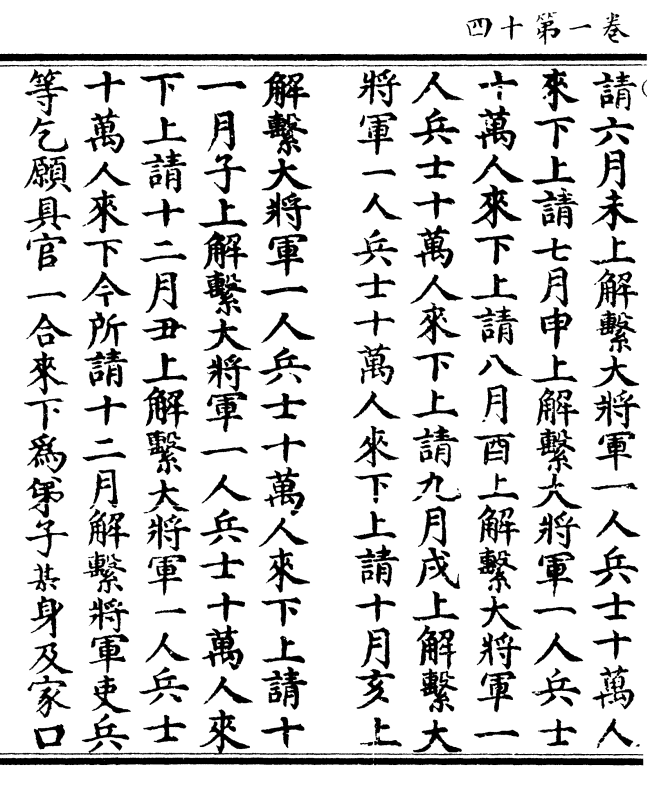 卷一第十四
請六月未上解繫大將軍一人兵士十萬人
來下上請七月申上解繫大將軍一人兵士
十萬人來下上請八月酉上解繫大將軍一
人兵士十萬人來下上請九月戌上解繫大
將軍一人兵士十萬人來下上請十月亥上
解繫大將軍一人兵士十萬人來下上請十
一月子上解繫大將軍一人兵士十萬人來
下上請十二月丑上解繫大將軍一人兵士
十萬人來下今所請十二月解繫將軍吏兵
等乞願具官一合來下爲弟子某身及家口